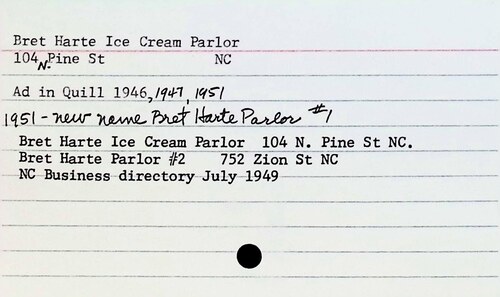 Bret Harte Ice Cream Parlor
104 N. Pine St NC
Ad in Quill 1946, 1947, 1951
1951 - new name Bret Harte Parlor #1
Bret Harte Ice Cream Parlor 104 N. Pine St NC.
Bret Harte Parlor #2 752 Zion St NC
NC Business directory July 1949